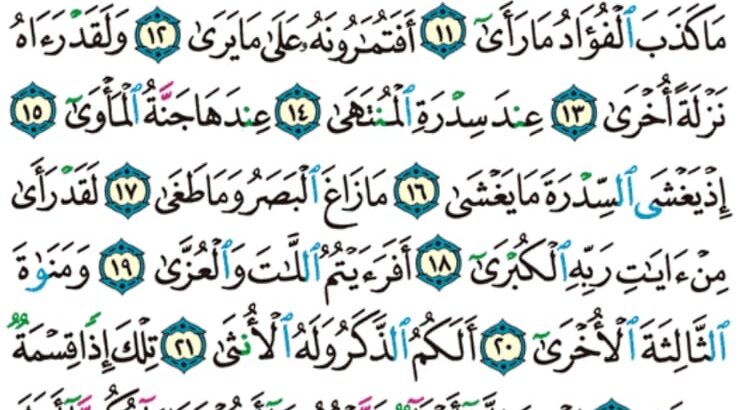 مَا كَذَبَ ٱلْفُؤَادُ مَا رَأَىٰٓ ١١ أَفَتُمَٰرُونَهُۥ عَلَىٰ مَا يَرَىٰ ١٢ وَلَقَدْ رَءَاهُ
نَزْلَةً أُخْرَىٰ ١٣ عِندَ سِدْرَةِ ٱلْمُنتَهَىٰ ١٤ عِندَهَا جَنَّةُ ٱلْمَأْوَىٰٓ ١٥
إِذْ يَغْشَى ٱلسِّدْرَةَ مَا يَغْشَىٰ ١٦ مَا زَاغَ ٱلْبَصَرُ وَمَا طَغَىٰ ١٧ لَقَدْ رَأَىٰ
مِنْ ءَايَٰتِ رَبِّهِ ٱلْكُبْرَىٰٓ ١٨ أَفَرَءَيْتُمُ ٱللَّٰتَ وَٱلْعُزَّىٰ ١٩ وَمَنَوٰةَ
ٱلثَّالِثَةَ ٱلْأُخْرَىٰٓ ٢٠ أَلَكُمُ ٱلذَّكَرُ وَلَهُ ٱلْأُنثَىٰ ٢١ تِلْكَ إِذًا قِسْمَةٌ